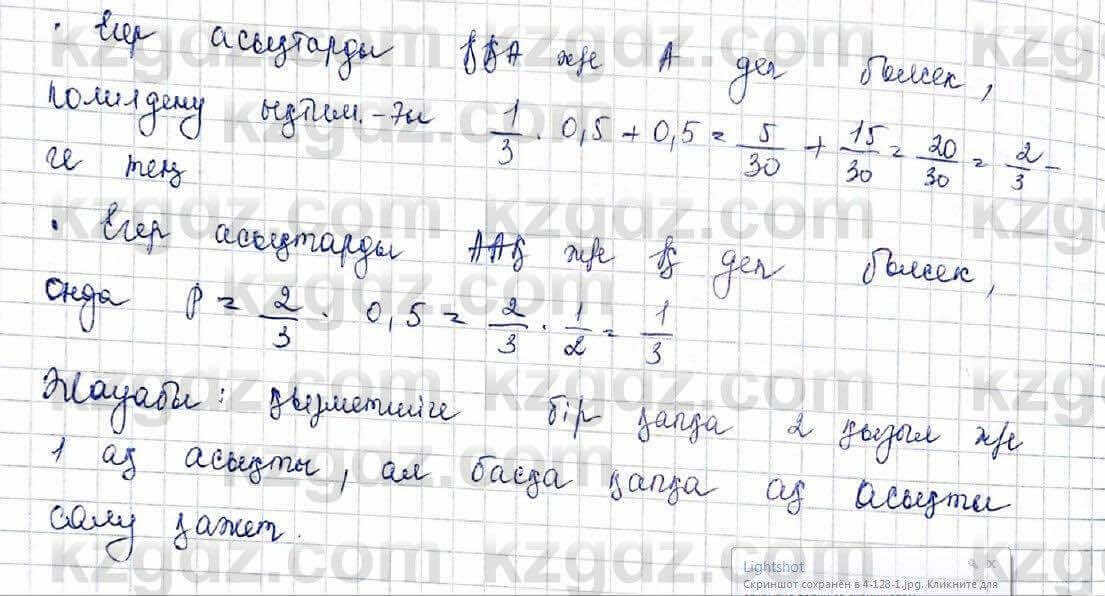 · Егер асықтарды ҚҚА және А деп бөлсек,
полилдену ықтим.-ғы 1/3 · 0,5 + 0,5 = 5/30 + 15/30 = 20/30 = 2/3 -
ге тең
· Егер асықтарды ААҚ және Қ деп бөлсек,
онда P = 2/3 · 0,5 = 2/3 · 1/2 = 1/3
Жауабы: қызметшіге бір қапқа 2 қызыл және
1 ақ асықты, ал басқа қапқа ақ асықты
салу қажет.
Lightshot
Скриншот сохранен в 4-128-1.jpg. Кликните для
kzgdz.com